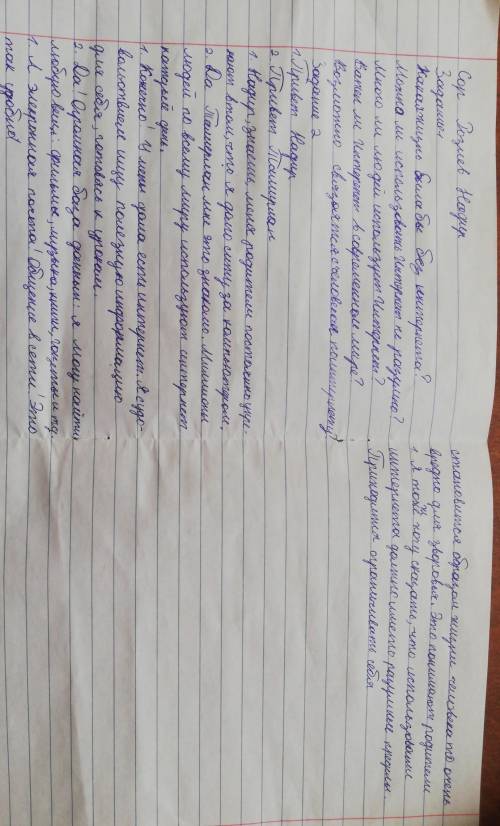 Сор Розиев Надир
Задание1
Какая жизнь была бы без интернета?
Можно ли использовать Интернет по разумно?
Много ли людей использует Интернет?
Важен ли Интернет в современном мире?
Возможно общаться с человеком по интернету?
Задание 2
1. Привет Надир
2 Привет Темирлан
1. Надир, знаешь, мои родители постоянно упре-
кают в том, что я долго сижу за компьютером,
2. Да Темирлан мне это знакомо. Миллионы
людей по всему миру используют интернет
каждый день.
1. Конечно! У меня дома есть интернет. Я с удо-
вольствием ищу полезную информацию
для себя, готовясь к урокам.
2. Да! Огромная база данных: я могу найти
любую вещь: фильмы, музыка, книги, газеты и т.д.
1. А электронная почта! Общение в сети! Это
так удобно!
становится образом жизни человека то очень
вредно для здоровья. Это понимают родители
1. Я тоже хочу сказать, что использование
интернета должно иметь разумные пределы.
Приходится ограничивать себя